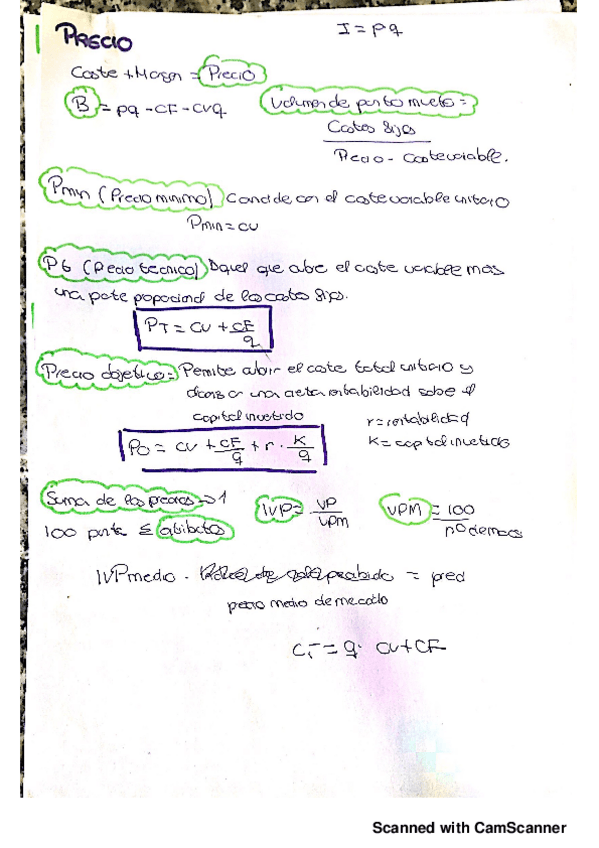 PRECIO
I = pq
Coste + Margen = Precio
B = pq - CF - CVq
Volumen de punto muerto =
Costes fijos
Precio - Coste variable.
Pmin (Precio minimo) Coincide con el coste variable unitario
Pmin = cu
Pt (Precio tecnico) Aquel que cubre el coste variable mas
una parte proporcional de los costes fijos.
PT = cu + CF/q
Precio objetivo = Permite cubrir el coste total unitario y
una cierta rentabilidad sobre el
capital invertido
r = rentabilidad
K = capital invertido
PO = cu + CF/q + r · K/q
Suma de los => 1
100 ≤ atributos
IVP = VP/VPM
VPM = 100/nº de marcas
IVP medio · = pred
precio medio de mercado
CT = q · cu + CF
Scanned with CamScanner